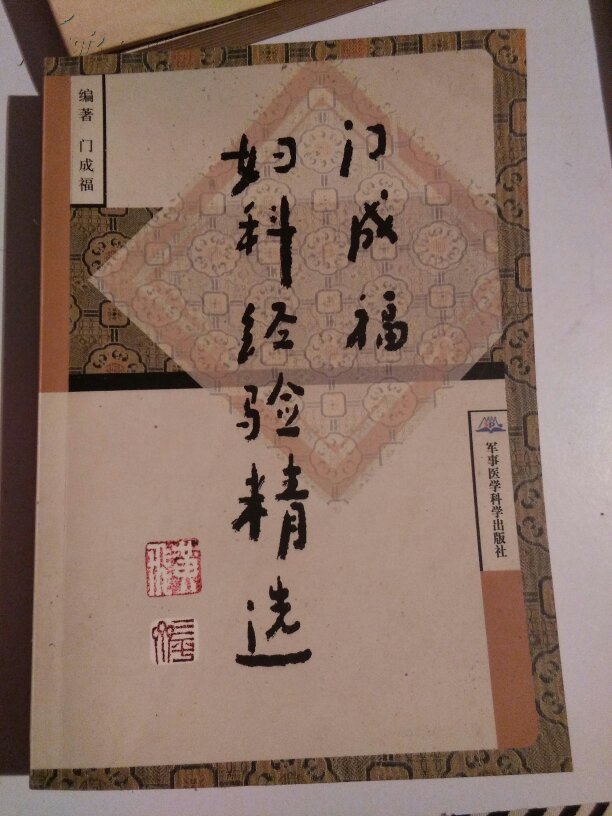 编著 门成福
门成福
妇科经验精选
军事医学科学出版社